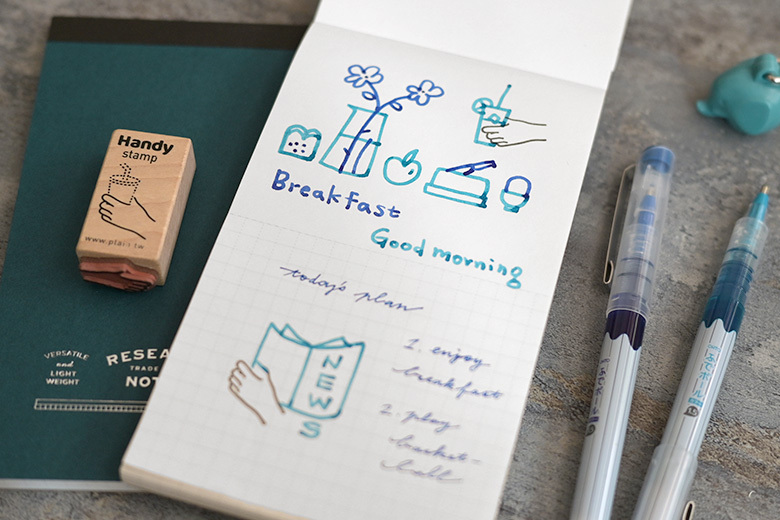 Handy
stamp
www.plain.tw
VERSATILE
and
LIGHT
WEIGHT
RESEA
TRADE
NOT
Breakfast
Good morning
today's plan
1. enjoy
breakfast
2. play
basket-
ball
NEWS
ふでボール